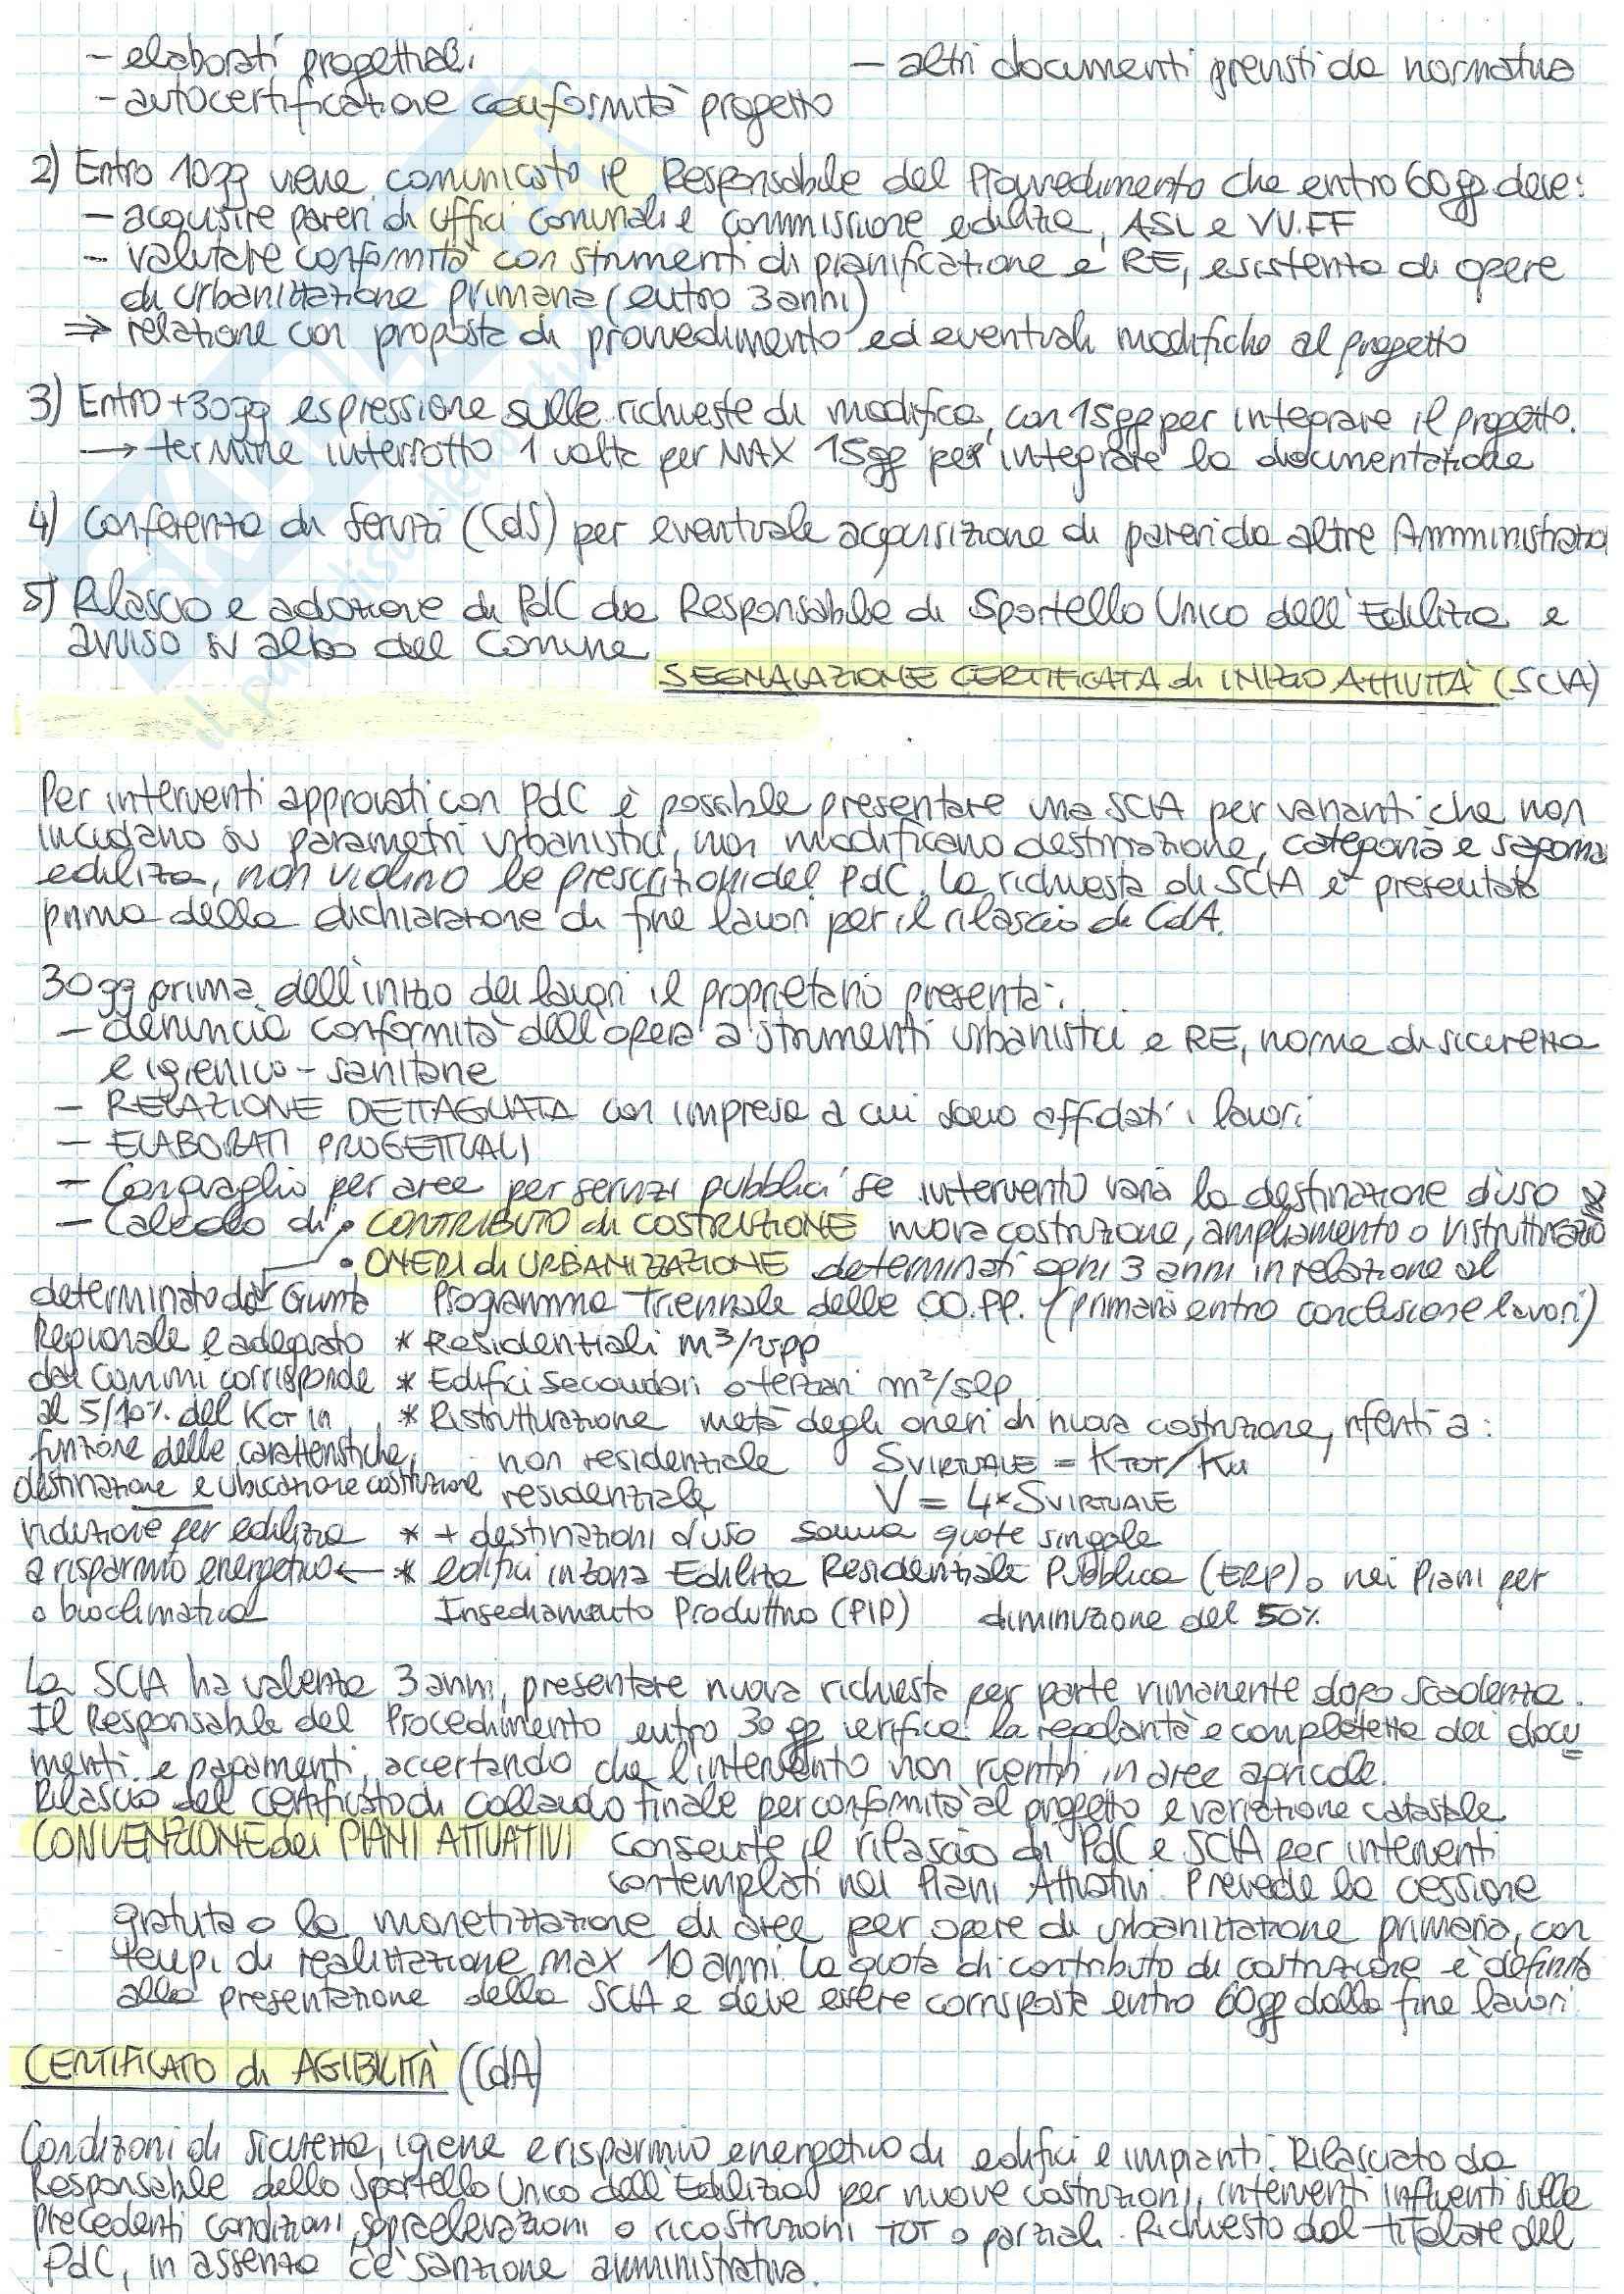 - elaborati progettuali
- altri documenti previsti da normativa
- autocertificazione conformità progetto
2) Entro 10gg viene comunicato il Responsabile del Provvedimento che entro 60gg deve:
- acquisire pareri di uffici comunali e commissione edilizia, ASL e VV.FF
- valutare conformità con strumenti di pianificazione e RE, esistenza di opere
di urbanizzazione primaria (entro 3 anni)
⇒ relazione con proposta di provvedimento ed eventuali modifiche al progetto
3) Entro +30gg espressione sulle richieste di modifica, con 15gg per integrare il progetto.
→ termine interrotto 1 volta per MAX 15gg per integrare la documentazione
4) Conferenza di Servizi (CdS) per eventuale acquisizione di pareri da altre Amministrazio
5) Rilascio e adozione di PdC da Responsabile di Sportello Unico dell'Edilizia e
avviso su albo del Comune
SEGNALAZIONE CERTIFICATA di INIZIO ATTIVITÀ (SCIA)
Per interventi approvati con PdC è possibile presentare una SCIA per varianti che non
incidano su parametri urbanistici, non modificano destinazione, categoria e sagoma
edilizia, non violino le prescrizioni del PdC. La richiesta di SCIA è presentata
prima della dichiarazione di fine lavori per il rilascio di CdA.
30gg prima dell'inizio dei lavori il proprietario presenta:
- denuncia conformità dell'opera a strumenti urbanistici e RE, norme di sicurezza
e igienico-sanitarie
- RELAZIONE DETTAGLIATA con impresa a cui sono affidati i lavori
- ELABORATI PROGETTUALI
- Conguaglio per aree per servizi pubblici se intervento varia la destinazione d'uso
- Calcolo di • CONTRIBUTO di COSTRUZIONE nuova costruzione, ampliamento o ristrutturazio
• ONERI di URBANIZZAZIONE determinati ogni 3 anni in relazione al
determinato da Giunta Programma Triennale delle OO.PP. (primaria entro conclusione lavori)
Regionale e adeguato * Residenziali m³/vpp
dai Comuni, corrisponde * Edifici secondari o terziari m²/slp
al 5/10% del KCT in * Ristrutturazione metà degli oneri di nuova costruzione, riferiti a:
funzione delle caratteristiche, non residenziale SVIRTUALE = KTOT/Ku
destinazione e ubicazione costruzione residenziale V = 4*SVIRTUALE
riduzione per edilizia * + destinazioni d'uso somma quote singole
a risparmio energetico ← * edifici in zona Edilizia Residenziale Pubblica (ERP) o nei Piani per
o bioclimatica Insediamento Produttivo (PIP) diminuzione del 50%
La SCIA ha valenza 3 anni, presentare nuova richiesta per parte rimanente dopo scadenza.
Il Responsabile del Procedimento entro 30 gg verifica la regolarità e completezza dei docu
menti e pagamenti, accertando che l'intervento non rientri in aree agricole.
Rilascio del certificato di collaudo finale per conformità al progetto e variazione catastale
CONVENZIONE dei PIANI ATTUATIVI consente il rilascio di PdC e SCIA per interventi
contemplati nei Piani Attuativi. Prevede la cessione
gratuita o la monetizzazione di aree per opere di urbanizzazione primaria, con
tempi di realizzazione max 10 anni. La quota di contributo di costruzione è definita
alla presentazione della SCIA e deve essere corrisposta entro 60gg dalla fine lavori.
CERTIFICATO di AGIBILITÀ (CdA)
Condizioni di sicurezza, igiene e risparmio energetico di edifici e impianti. Rilasciato da
Responsabile dello Sportello Unico dell'Edilizia per nuove costruzioni, interventi influenti sulle
precedenti condizioni, sopraelevazioni o ricostruzioni TOT o parziali. Richiesto dal titolare del
PdC, in assenza c'è sanzione amministrativa.